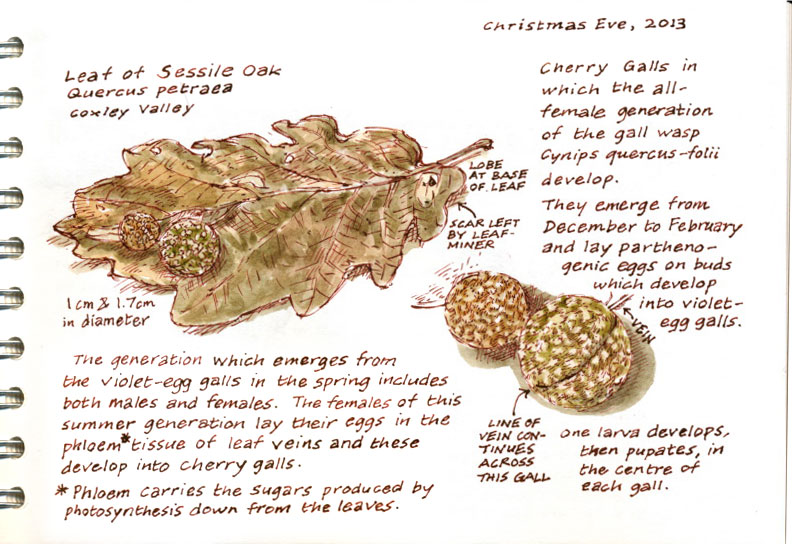 Christmas Eve, 2013
Leaf of Sessile Oak
Quercus petraea
Coxley Valley
Cherry Galls in
which the all-
female generation
of the gall wasp
Cynips quercus-folii
develop.
They emerge from
December to February
and lay partheno-
genic eggs on buds
which develop
into violet-
egg galls.
LOBE
AT BASE
OF LEAF
SCAR LEFT
BY LEAF-
MINER
1cm & 1.7cm
in diameter
VEIN
The generation which emerges from
the violet-egg galls in the spring includes
both males and females. The females of this
summer generation lay their eggs in the
phloem* tissue of leaf veins and these
develop into cherry galls.
* Phloem carries the sugars produced by
photosynthesis down from the leaves.
LINE OF
VEIN CON-
TINUES
ACROSS
THIS GALL
One larva develops,
then pupates, in
the centre of
each gall.